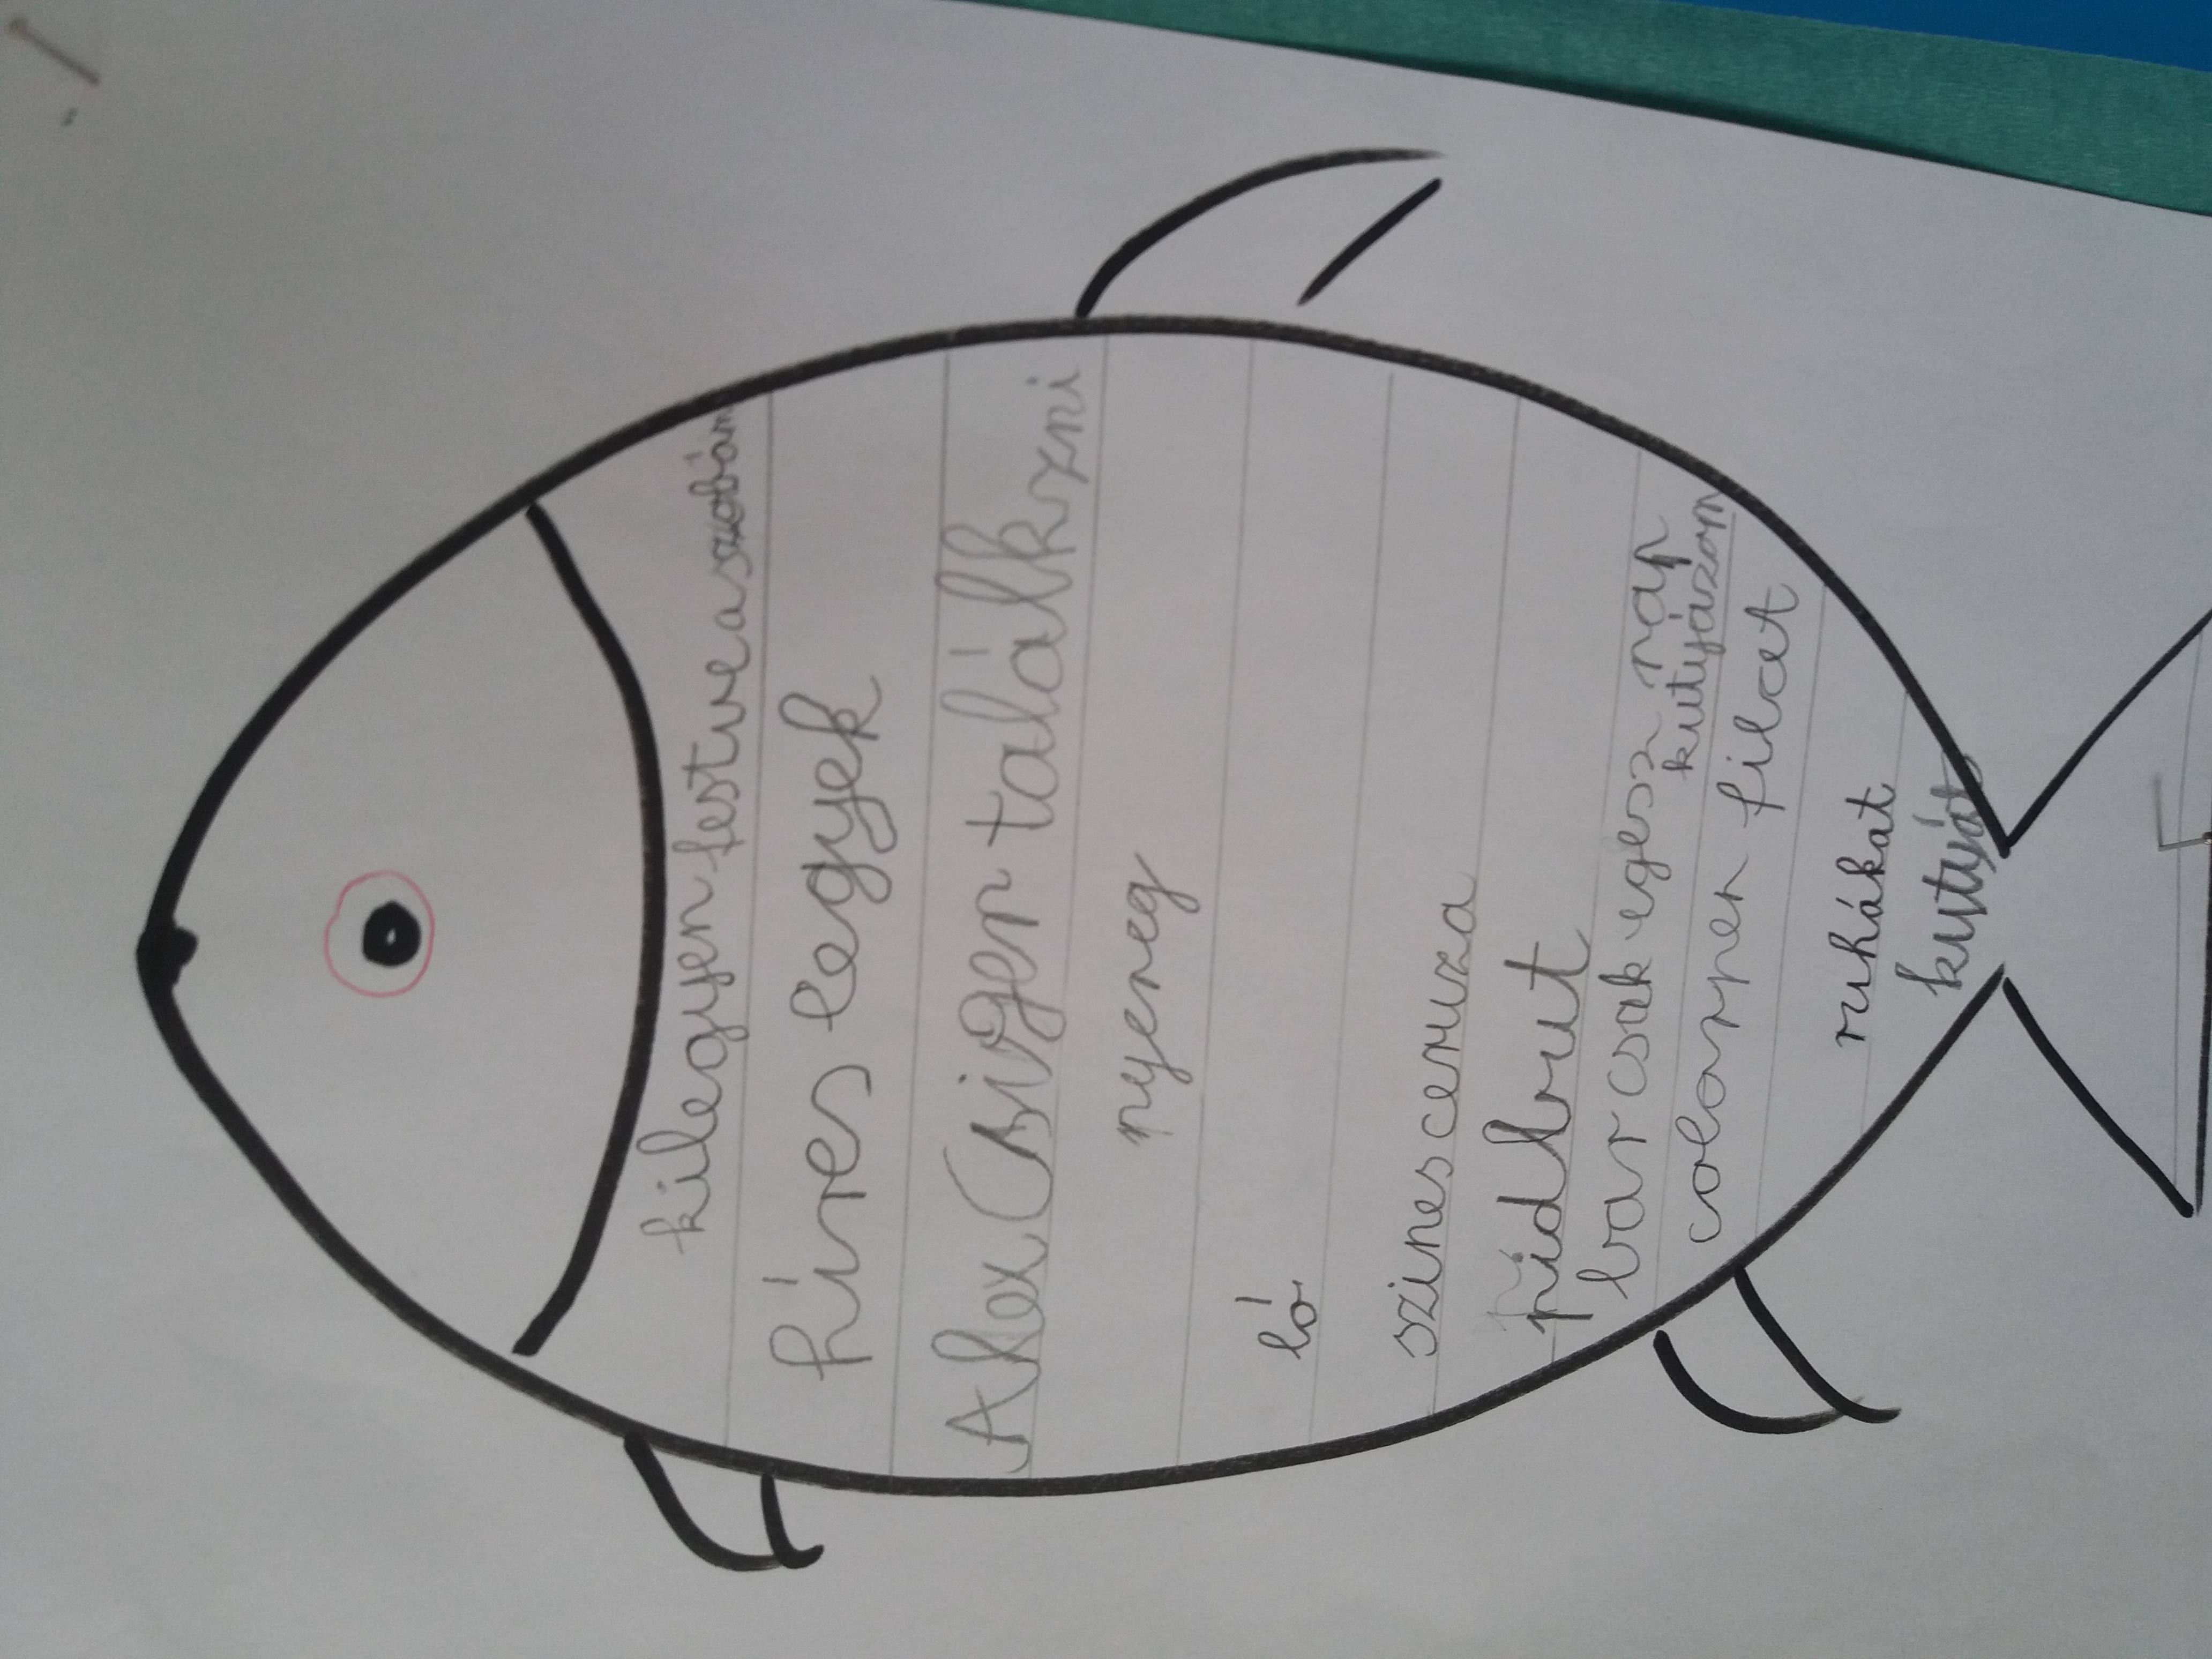 kilegyen festve a szobám
híres legyek
Alex Csiger találkzni
nyereg
ló
szines ceruza
pidbut
bar csak egesz nap
kutyázom
colorpen filcet
ruhákat
kutyát